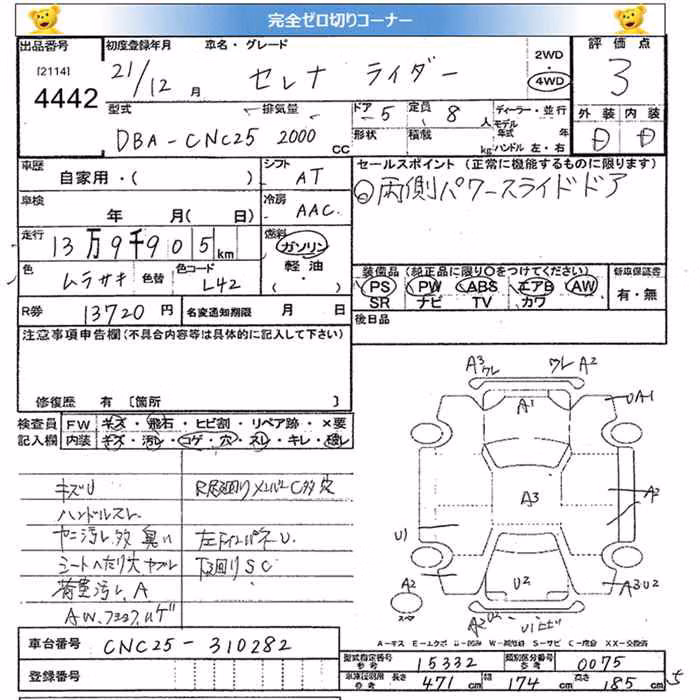 完全ゼロ切りコーナー
出品番号 初度登録年月 車名・グレード 評価点
[2114]
4442
21/12 月 セレナ ライダー 2WD 4WD 3
型式 排気量 ドア 5 定員 8 人 ディーラー・並行 外装 内装
DBA-CNC25 2000 CC 形状 積載 kg モデル年式 年 D D
ハンドル 左・右
車歴 シフト セールスポイント (正常に機能するものに限ります)
自家用・( ) AT ◎両側パワースライドドア
車検 冷房
年 月( 日) AAC
走行 燃料
13万9千905km ガソリン
軽油
( ・ )
色 ムラサキ 色替 色コード L42
装備品 (純正品に限り○をつけてください) 新車保証書
PS PW ABS エアB AW 有・無
SR ナビ TV カワ
R券 13720 円 名変通知期限 月 日 後日品
注意事項申告欄(不具合内容等は具体的に記入して下さい)
修復歴 有 〔箇所 〕
検査員 FW キズ・飛石・ヒビ割・リペア跡・×要
記入欄 内装 キズ・汚レ・コゲ・穴・スレ・キレ・残レ
キズU
ハンドルスレ
ヤニ汚レ多 臭い
シートへたり穴ヤブレ
荷室汚レ.A
下回りSC
A3 ワレ ワレ A2
A1 UA1
A3 A2
U1
U2
A2 A3U2
スペア
A-キズ E-エクボ U-凹み W-補修跡 S-サビ C-腐食 XX-交換済
車台番号 CNC25-310282
登録番号
型式指定番号 参考 15332 類別区分番号 参考 0075
長さ 471cm 幅 174cm 高さ 185cm